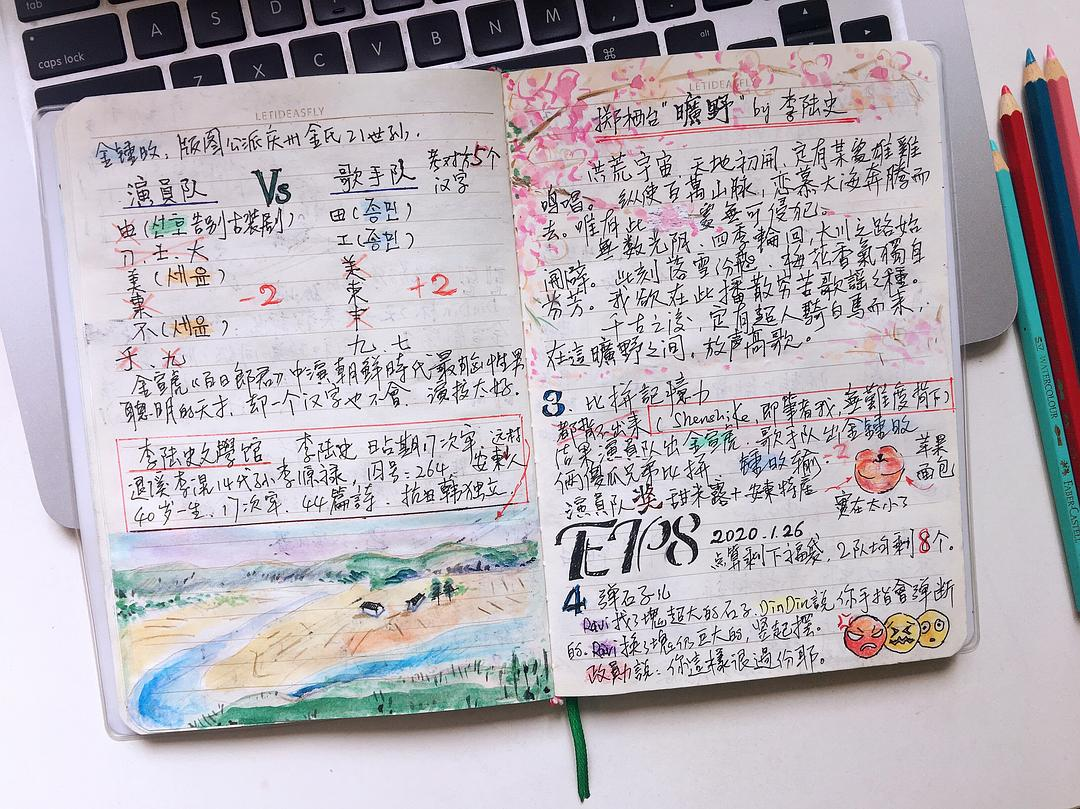 tab
caps lock
A
S
D
F
G
H
J
K
L
Z
X
C
V
B
N
M
alt
LETIDEASFLY
金鍾旼，版图公派庆州金氏21世孙。
演員队 Vs 歌手队 考对方5个
汉字
由(선호告别古装剧) 由(종민)
士、大 工(종민)
美(세윤) 美
東 -2 東 +2
不(세윤) 末
天、九 九、七
金宣虎《百日郎君》中演朝鮮時代最有男性
聰明的天才，却一个汉字也不會，演技太好。
李陆史文學馆 李陆史 日占期17次牢，远村
退溪李滉14代孙李源禄，囚号：264，安東人
40岁一生，17次牢，44篇詩，抗日韩独立
LETIDEASFLY
"曠野" by 李陆史
洪荒宇宙，天地初開，定有某處雄雞
鳴唱。纵使百萬山脉，恋慕大海奔腾而
去。唯有此處無可侵犯。
無數光阴，四季輪回，大川之路始
開辟。此刻落雪纷飞，梅花香氣獨自
芬芳。我欲在此播散穷苦歌謡之種。
千古之後，定有超人騎白馬而来，
在這曠野之间，放声高歌。
3. 比拼記憶力
都背不出来 (Shenshike 即筆者我，無難度背下)
结果演員队出金宣虎，歌手队出金鍾旼
俩傻瓜兄弟比拼 鍾旼输。-2 苹果
面包
演員队奖 甜米露+安東特産 實在太小了
EP8 2020.1.26
点算剩下福袋，2队均剩8个。
4 弹石子儿
Ravi找了塊超大的石子，DinDin說你手指會弹断
的。Ravi换了塊仍巨大的，竖起摆。
政勋說：你這樣很過份耶。
WATERCOLOUR
FABER-CASTELL